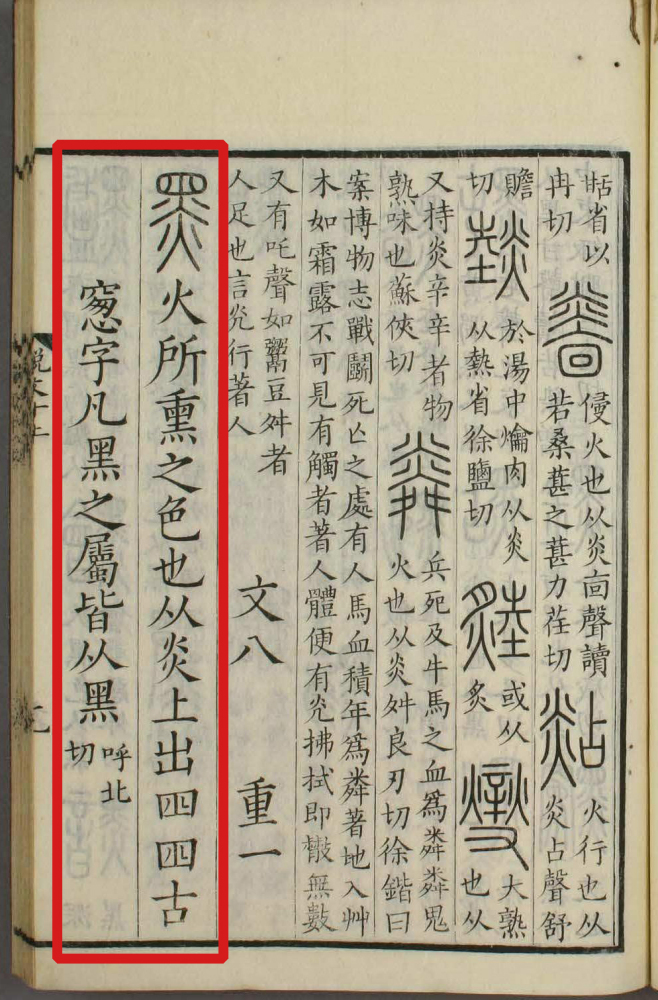 甛省以
冉切
侵火也从炎㐭聲讀
若桑葚之葚力荏切
煔
火行也从
炎占聲舒
贍
切
燅
於湯中爚肉从炎
从熱省徐鹽切
或从
炙
燮
大熟
也从
又持炎辛辛者物
熟味也蘇俠切
㷠
兵死及牛馬之血爲㷠㷠鬼
火也从炎舛良刃切徐鍇曰
案博物志戰鬭死亾之處有人馬血積年爲㷠著地入艸
木如霜露不可見有觸者著人體便有光拂拭即散無數
又有吒聲如鬻豆舛者
人足也言光行著人
文八 重一
黑火所熏之色也从炎上出四四古
窻字凡黑之屬皆从黑
呼北
切
說文十上